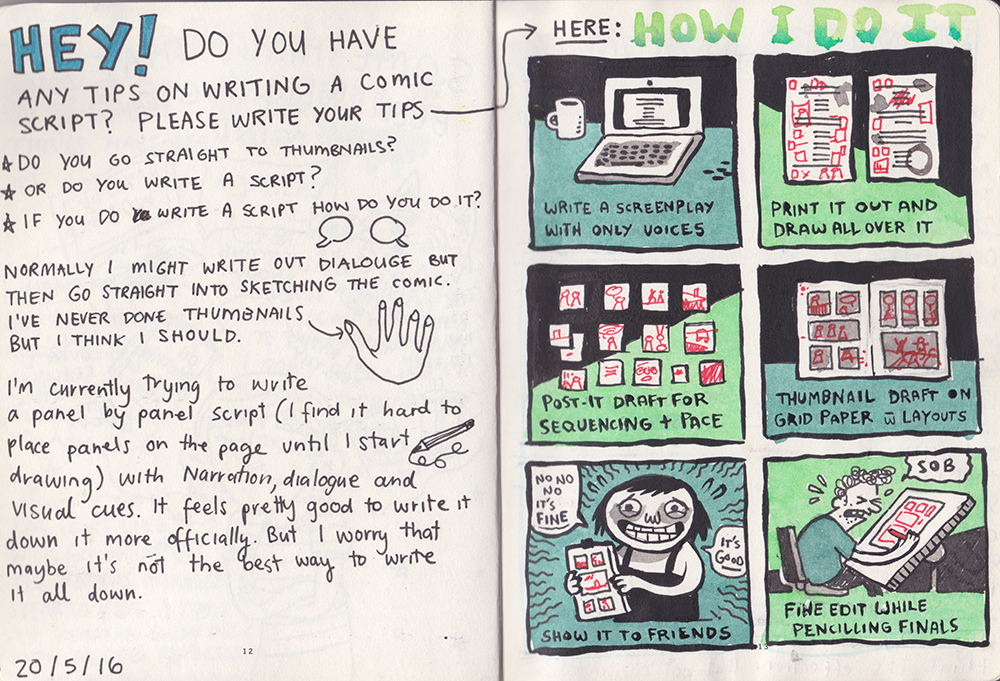 HEY! DO YOU HAVE
ANY TIPS ON WRITING A COMIC
SCRIPT? PLEASE WRITE YOUR TIPS
DO YOU GO STRAIGHT TO THUMBNAILS?
OR DO YOU WRITE A SCRIPT?
IF YOU DO WRITE A SCRIPT HOW DO YOU DO IT?
NORMALLY I MIGHT WRITE OUT DIALOUGE BUT
THEN GO STRAIGHT INTO SKETCHING THE COMIC.
I'VE NEVER DONE THUMBNAILS
BUT I THINK I SHOULD.
I'm currently trying to write
a panel by panel script (I find it hard to
place panels on the page until I start
drawing) with Narration, dialogue and
visual cues. It feels pretty good to write it
down it more officially. But I worry that
maybe it's not the best way to write
it all down.
12
20/5/16
HERE: HOW I DO IT
WRITE A SCREENPLAY
WITH ONLY VOICES
PRINT IT OUT AND
DRAW ALL OVER IT
POST-IT DRAFT FOR
SEQUENCING + PACE
THUMBNAIL DRAFT ON
GRID PAPER w̅ LAYOUTS
NO NO
NO
IT'S
FINE
IT'S
GOOD
SHOW IT TO FRIENDS
SOB
FINE EDIT WHILE
PENCILLING FINALS
13